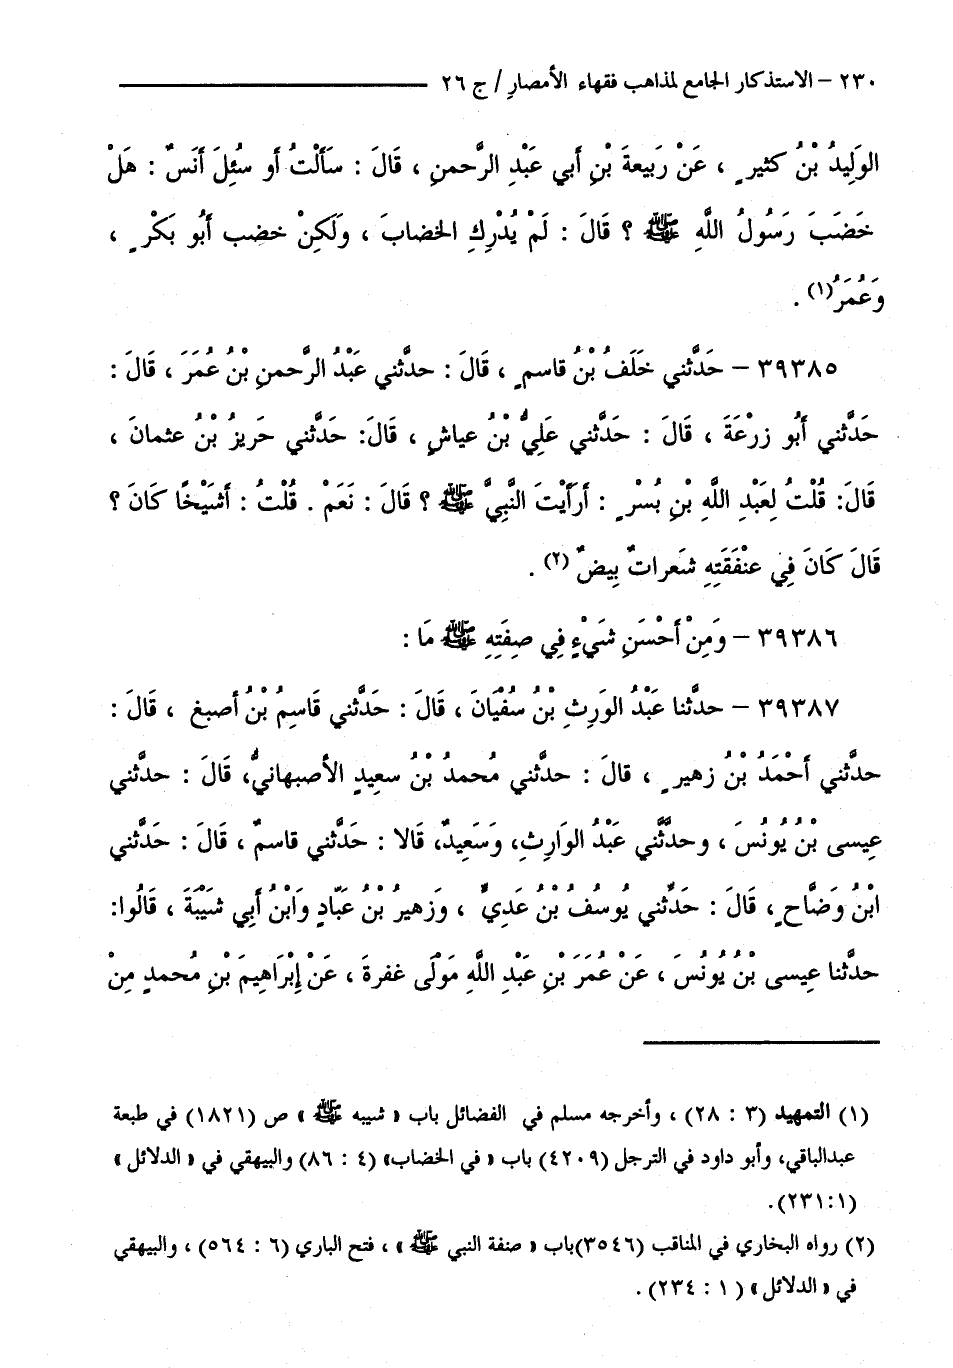 ٢٣٠ – الاستذكار الجامع لمذاهب فقهاء الأمصارِ / ج ٢٦
الوَلِيدُ بْنُ كثيرٍ ، عَنْ رَبِيعةَ بْنِ أبي عَبْدِ الرَّحمنِ ، قَالَ : سَأَلْتُ أو سُئِلَ أَنَسٌ : هَلْ
خَضَبَ رَسُولُ اللَّهِ ﷺ ؟ قَالَ : لَمْ يُدْرِكِ الخضابَ ، ولَكِنْ خضب أَبُو بَكْرٍ ،
وَعُمَرُ(١) .
٣٩٣٨٥ – حَدَّثني خَلَفُ بْنُ قاسمٍ ، قَالَ : حدَّثني عَبْدُ الرَّحمنِ بْنُ عُمَرَ ، قَالَ :
حَدَّثني أَبُو زرْعَةَ ، قَالَ : حَدَّثني عَلِيُّ بْنُ عياشٍ ، قَالَ: حَدَّثني حَرِيزُ بْنُ عثمانَ ،
قَالَ: قُلْتُ لِعَبْدِ اللَّهِ بْنِ بُسْرٍ : أرَأَيْتَ النَّبِيَّ ﷺ ؟ قَالَ : نَعَمْ . قُلْتُ : أشَيْخًا كَانَ ؟
قَالَ كَانَ فِي عنْفَقَتِهِ شَعراتٌ بِيضٌ (٢) .
٣٩٣٨٦ – وَمِنْ أَحْسَنِ شَيْءٍ فِي صِفَتِهِ ﷺ مَا :
٣٩٣٨٧ – حدَّثنا عَبْدُ الوَرِثِ بْنُ سُفْيَانَ ، قَالَ : حَدَّثني قَاسِمُ بْنُ أصبغ ، قَالَ :
حدَّثني أَحْمَدُ بْنُ زهيرٍ ، قالَ : حدَّثني مُحمدُ بْنُ سعيدٍ الأصبهانيُّ، قَالَ : حدَّثني
عِيسى بْنُ يُونُسَ ، وحدَّثَّني عَبْدُ الوَارِثِ، وَسَعِيدٌ، قَالا : حَدَّثني قاسمٌ ، قَالَ : حَدَّثني
ابْنُ وَضَّاحٍ ، قَالَ : حَدَّثني يُوسُفُ بْنُ عَدِيٌّ ، وَزهيرُ بْنُ عَبَّادٍ وَابْنُ أَبِي شَيْبَةَ ، قَالُوا:
حدَّثنا عِيسى بْنُ يُونُسَ ، عَنْ عُمَرَ بْنِ عَبْدِ اللَّهِ مَوْلَى غفرةَ ، عَنْ إِبْرَاهِيمَ بْنِ مُحمدٍ مِنْ
(١) التمهيد (٣ : ٢٨) ، وأخرجه مسلم في الفضائل باب « شيبه ﷺ » ص (١٨٢١) في طبعة
عبدالباقي، وأبو داود في الترجل (٤٢٠٩) باب « في الخضاب» (٤ : ٨٦) والبيهقي في « الدلائل »
(٢٣١:١).
(٢) رواه البخاري في المناقب (٣٥٤٦)باب « صنفة النبي ﷺ » ، فتح الباري (٦ : ٥٦٤) ، والبيهقي
في « الدلائل » ( ١ : ٢٣٤) .